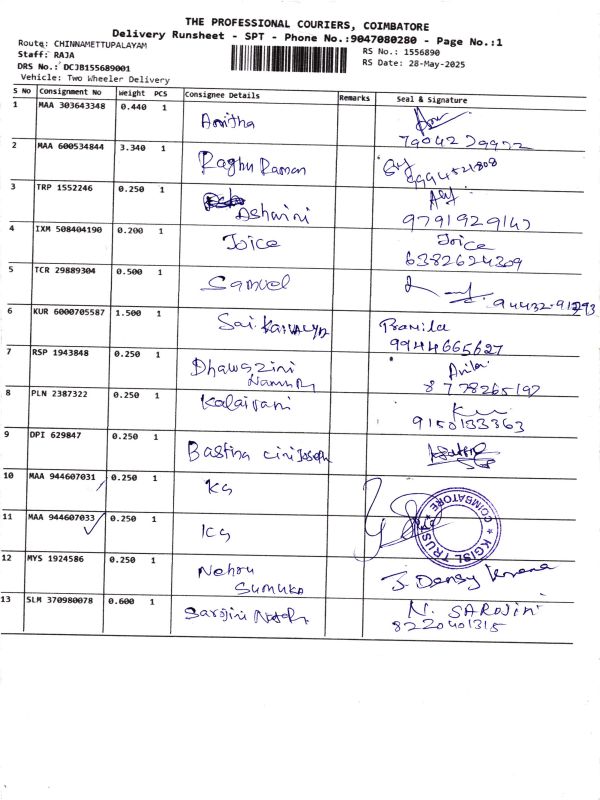 THE PROFESSIONAL COURIERS, COIMBATORE
Delivery Runsheet - SPT - Phone No.:9047080280 - Page No.:1
Route: CHINNAMETTUPALAYAM
Staff: RAJA
DRS No.: DCJB155689001
Vehicle: Two Wheeler Delivery
RS No.: 1556890
RS Date: 28-May-2025
S No Consignment No Weight PCS Consignee Details Remarks Seal & Signature
1 MAA 303643348 0.440 1 Amitha
7904279972
2 MAA 600534844 3.340 1 Raghu Raman
9994521808
3 TRP 1552246 0.250 1 Ashwini
9791929147
4 IXM 508404190 0.200 1 Joice Joice
6382624309
5 TCR 29889304 0.500 1 Samuel
94432-91293
6 KUR 6000705587 1.500 1 Sai Pramila
9944665627
7 RSP 1943848 0.250 1
8778265197
8 PLN 2387322 0.250 1 Kalaivani
9150133363
9 DPI 629847 0.250 1 Bastina Cini Joseph
10 MAA 944607031 0.250 1 KG
11 MAA 944607033 0.250 1 KG
KGISL TRUST * COIMBATORE *
12 MYS 1924586 0.250 1 Nehru J. Densy
13 SLM 370980078 0.600 1 Sarojini N. SAROJINI
8220401315